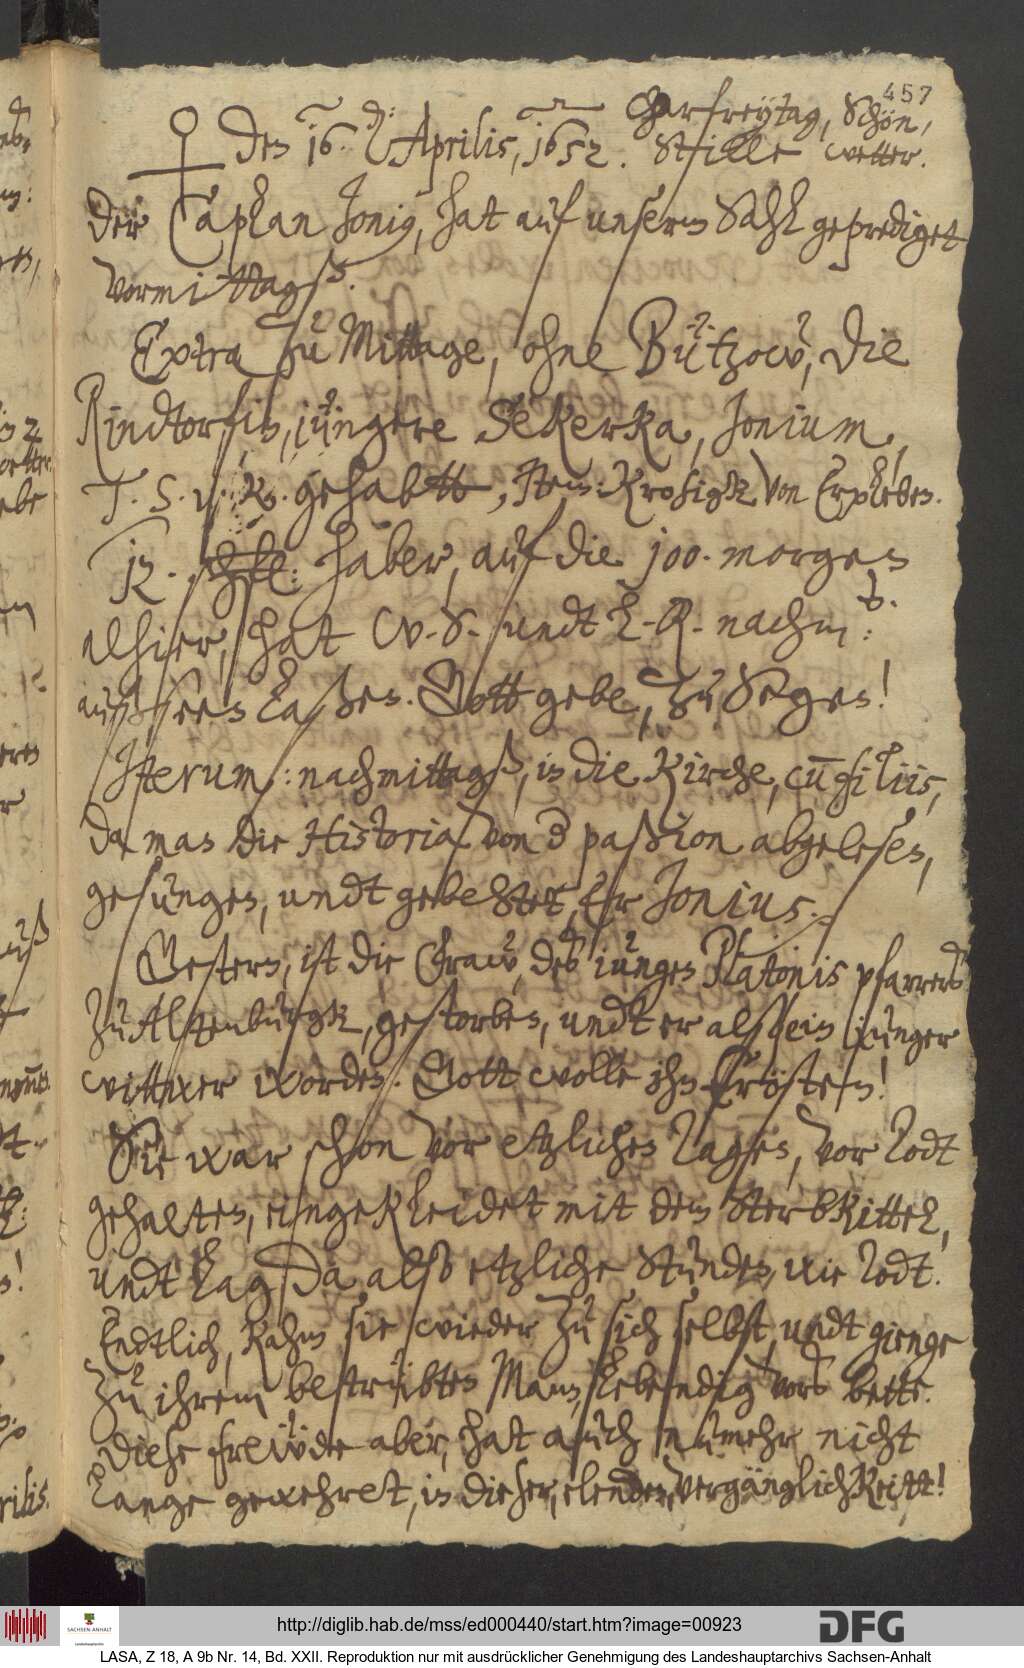 457
Den 16. d: Aprilis, 1652. Charfreÿtag, Schön,
Stille wetter.
Der Caplan Jonig, hat auf unserm Sahl geprediget
Vormittagß.
Extra zu Mittage, ohne Bützow, die
Rindtorfin, jüngere Sekerka, Jonium,
T. S. v. R. gehabtt, Item: Krosigk von Erxleben.
12. schfl: haber, auf die 100. morgen
alhier, hat W. S. undt L. R. nachm: t.
außseen laßen. Gott gebe, zu Segen!
Iterum: nachmittagß, in die Kirche, cũ filiis,
da man die Historia von d passion abgelesen,
gesungen, undt gebehtet, Ehr Jonius.
Gestern, ist die Fraw, deß iungen Platonis pfarrers
zu Altenburgk, gestorben, undt er alß ein iunger
wittwer worden. Gott wolle ihn trösten!
Sie war schon vor etzlichen Tagen, vor Todt
gehalten, eingekleidet mit dem Sterbkittel,
undt lag da also etzliche Stunden, wie Todt.
Endtlich, kahm sie wieder zu sich selbst, undt gienge
zu ihrem betrübten Mann, lebendig vorß bette.
Diese freüde aber, hat auch nu mehr nicht
lange gewehret, in dieser, elenden, vergänglichkeitt!
http://diglib.hab.de/mss/ed000440/start.htm?image=00923
SACHSEN-ANHALT
DFG
LASA, Z 18, A 9b Nr. 14, Bd. XXII. Reproduktion nur mit ausdrücklicher Genehmigung des Landeshauptarchivs Sachsen-Anhalt